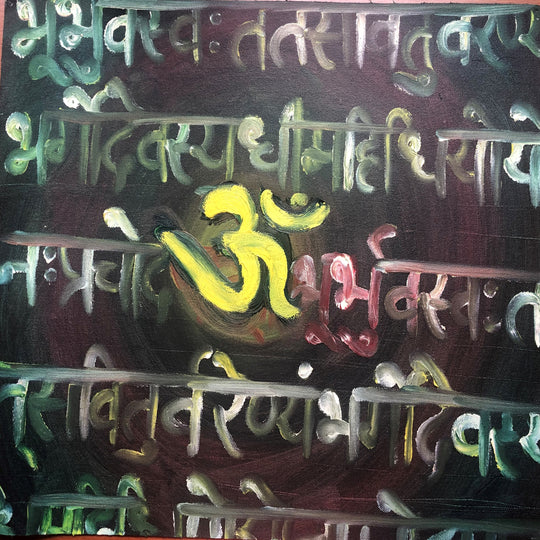 भूर्भुवस्वः तत्सवितुवरेण्य
भर्गोदेवस्यधीमहिधियोय
नःप्रचोद ॐ भूर्भुवस्वःत
त्सवितुर्वरेण्यंभर्गोदेवस्य